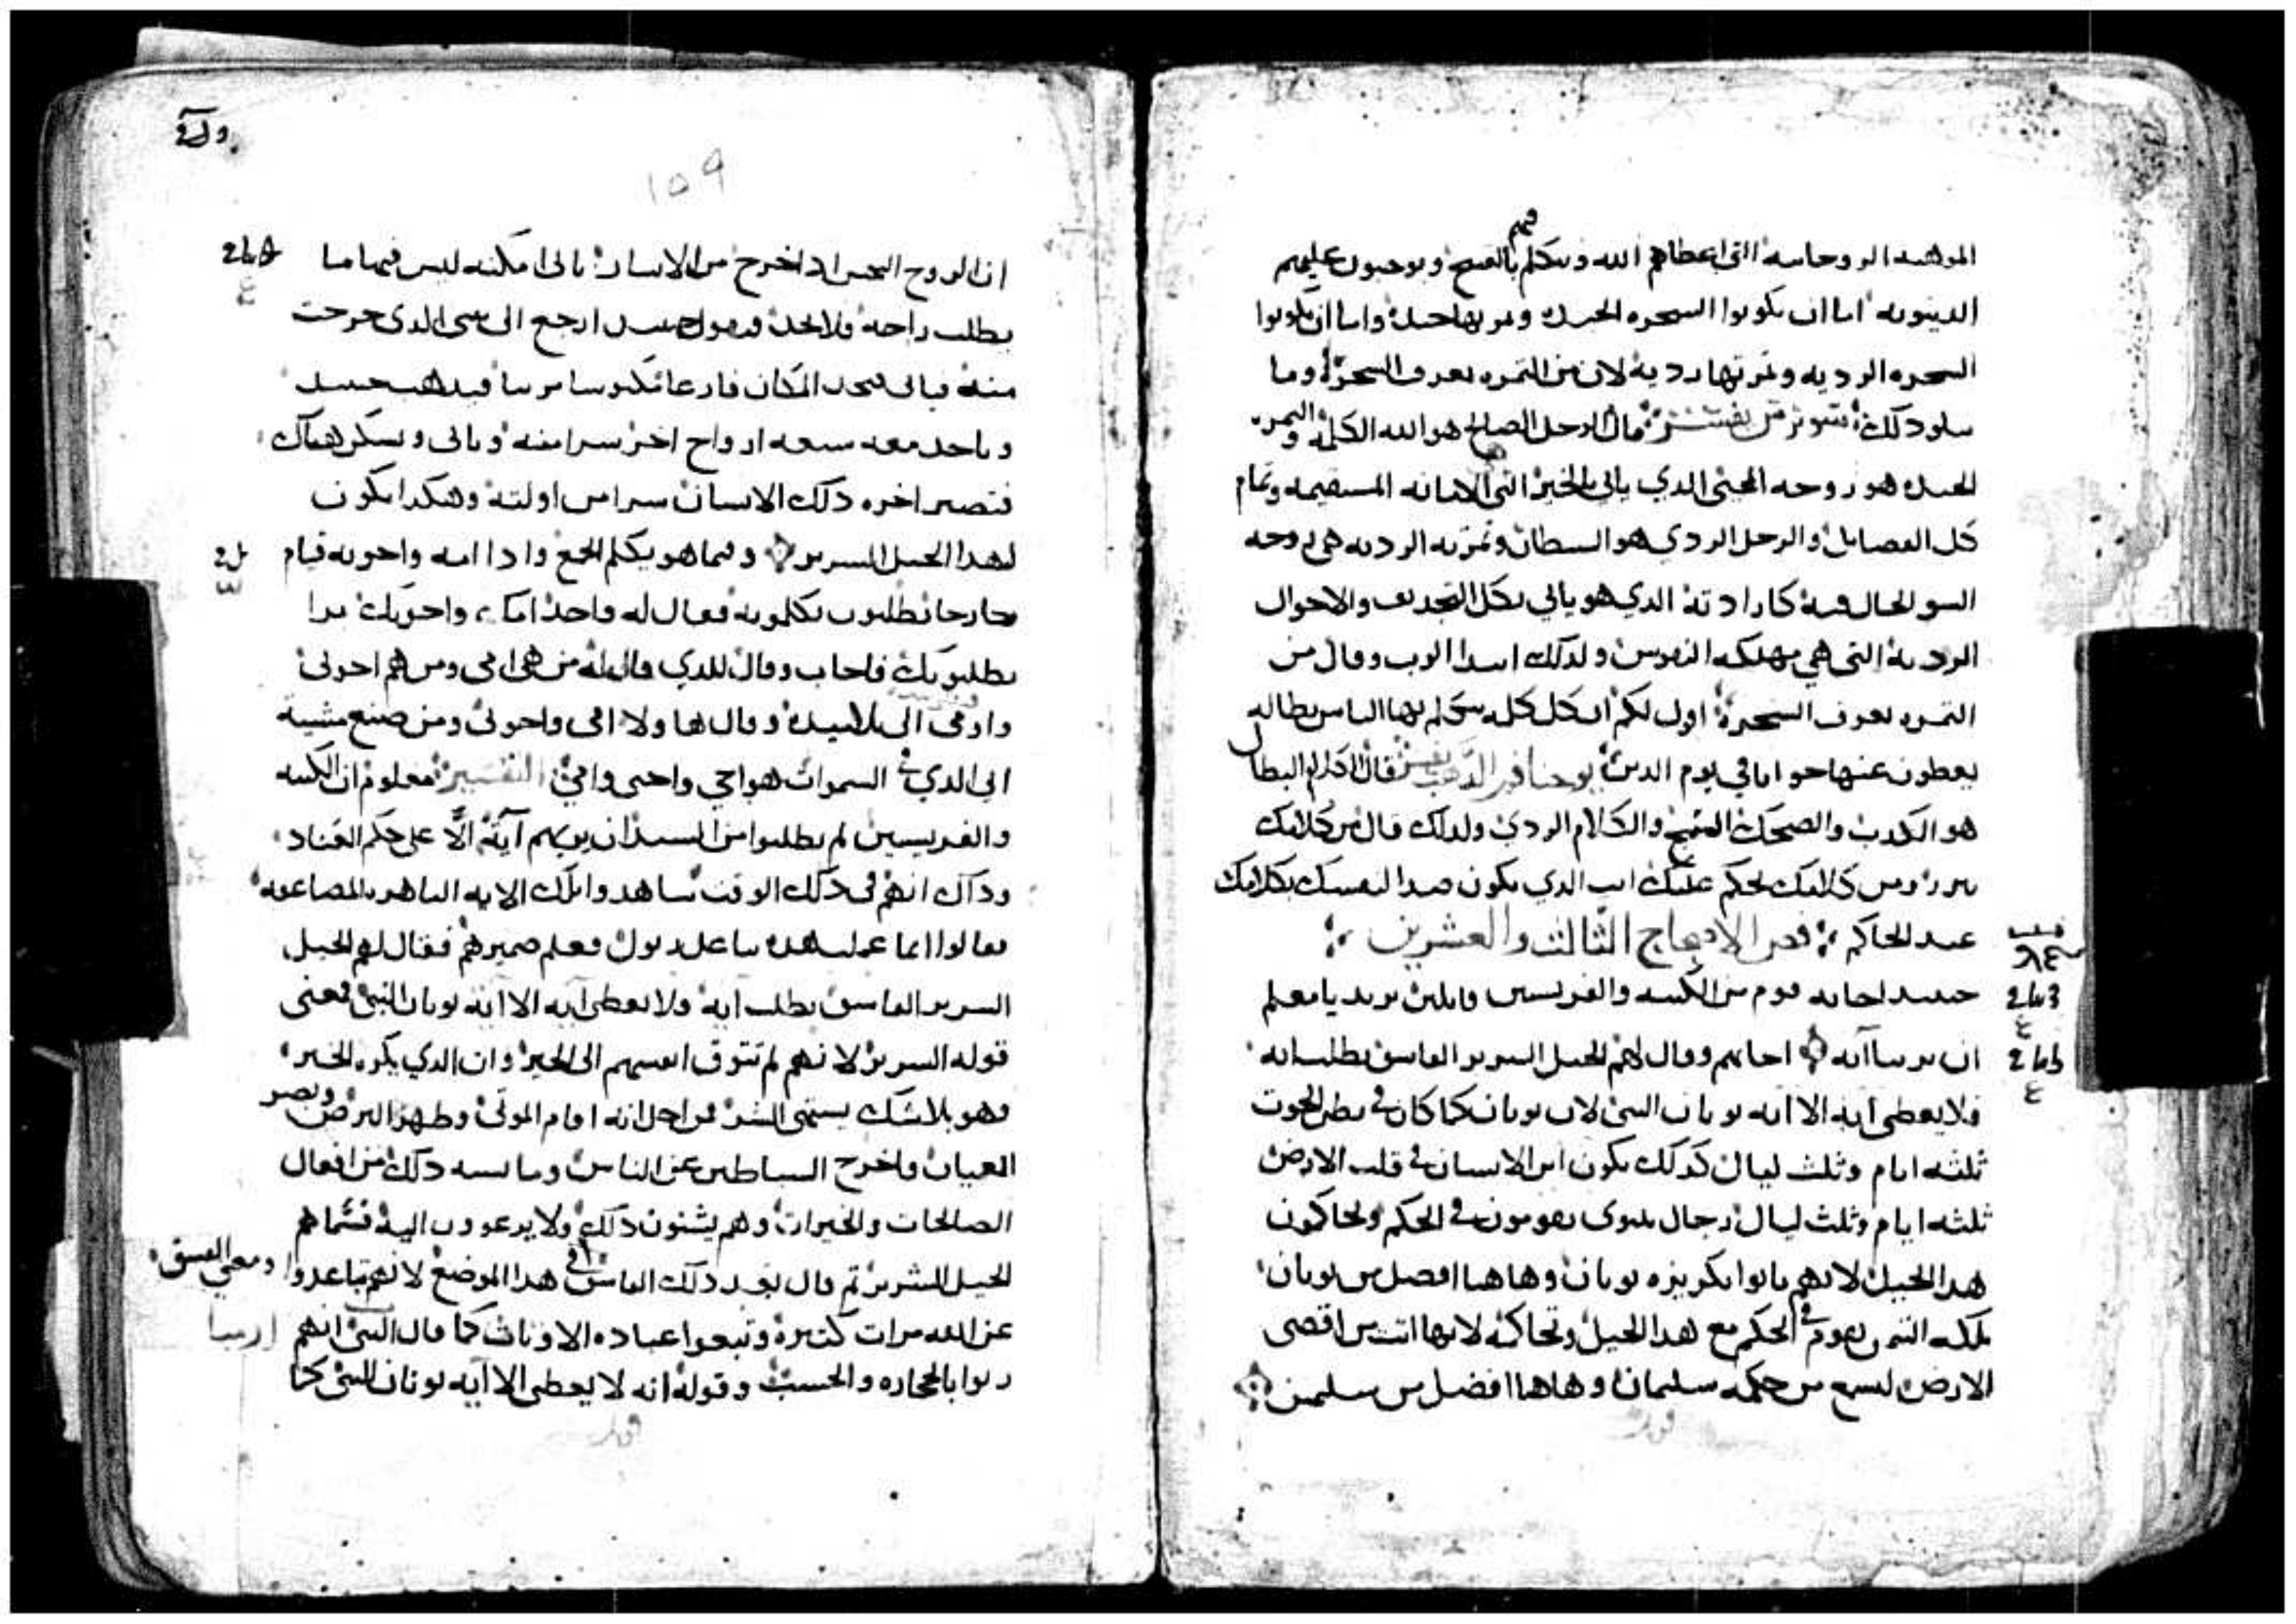 الموهبه الروحانيه التي اعطاهم الله ويتكلم فيهم بالقبيح ويوجبون عليهم
الدينونه اما ان يكونوا الشجره الجيده وثمرتها جيده واما ان يكونوا
الشجره الرديه وثمرتها رديه لان من الثمره تعرف الشجره وما
يتلوا ذلك قال الرجل الصالح هو الله الكلمه والثمره
الجيده هو روحه المحيي الذي ياتي بالخير التي الامانه المستقيمه وتمام
كل الفضايل والرجل الردي هو الشيطان وثمرته الرديه هي روحه
السو الحال فيه كارادته الذي هو ياتي بكل التجديف والاحوال
الرديه التي هي مهلكه النفوس ولذلك ابتدا الرب وقال من
الثمره تعرف الشجره اقول لكم ان كل كلمه يتكلم بها الناس بطاله
يعطون عنها جوابا في يوم الدين يوحنا فم الذهب يفسر قال الكلام البطال
هو الكذب والضحك القبيح والكلام الردي ولذلك قال من كلامك
تتبرر ومن كلامك يحكم عليك انت الذي تكون ضدا لنفسك بكلامك
عند الحاكم فصر الاصحاح الثالث والعشرين
حينيد اجابه قوم من الكتبه والفريسيين قايلين نريد يا معلم
ان ترينا آيه اجابهم وقال لهم الجيل الشرير الفاسق يطلب ايه
فلا يعطى ايه الا ايه يونان النبي لان يونان كما كان في بطن الحوت
ثلثه ايام وثلث ليال كذلك يكون ابن الانسان في قلب الارض
ثلثه ايام وثلث ليال رجال نينوى يقومون في الحكم ويحاكمون
هذا الجيل لانهم تابوا بكريزه يونان وهاهنا افضل من يونان
ملكه التيمن تقوم في الحكم مع هذا الجيل وتحاكمه لانها اتت من اقصى
الارض لتسمع من حكمه سليمان وهاهنا افضل من سليمن
١٥٩
ان الروح النجس اذا خرج من الانسان ياتي امكنه ليس فيها ما
يطلب راحه فلا يجد فيقول حينيد ارجع الى بيتي الذي خرجت
منه فياتي فيجد المكان فارغا مكنوسا مزينا فيذهب حينيد
وياخذ معه سبعه ارواح اخر شرا منه وياتي ويسكن هناك
فتصير اخره ذلك الانسان شرا من اولته وهكذا يكون
لهذا الجيل الشرير وفيما هو يكلم الجمع واذا امه واخوته قيام
خارجا يطلبون يكلموه فقال له واحد امك واخوتك برا
يطلبونك فاجاب وقال للذي قال له من هي امي ومن هم اخوتي
واومى الى تلاميده وقال هاولا امي واخوتي ومن صنع مشيه
ابي الذي في السموات هو اخي واختي وامي التفسير معلوم ان الكتبه
والفريسيين لم يطلبوا من السيد ان يريهم آيه الا على حكم العناد
وذاك انهم في ذلك الوقت شاهدوا تلك الايه الباهره المضاعفه
فقالوا انما عملت هذه بباعل زبول فعلم ضميرهم فقال لهم الجيل
الشرير الفاسق يطلب ايه ولا يعطى ايه الا ايه يونان النبي فمعنى
قوله الشرير لانهم لم تتوق انفسهم الى الخير وان الذي يكره الخير
فهو بلا شك يشتهي الشر من اجل انه اقام الموتى وطهر البرص وبصر
العميان واخرج الشياطين عن الناس وما يشبه ذلك من افعال
الصالحات والخيرات وهم يشنون ذلك ولا يرعوون اليه فسماهم
الجيل الشرير ثم قال بعد ذلك الفاسق في هذا الموضع لانهم تباعدوا ومعنى الفسق
عن الله مرات كثيره وتبعوا عباده الاوثان كما قال النبي انهم ارميا
زنوا بالحجاره والخشب وقوله انه لا يعطى الا آيه يونان النبي كما